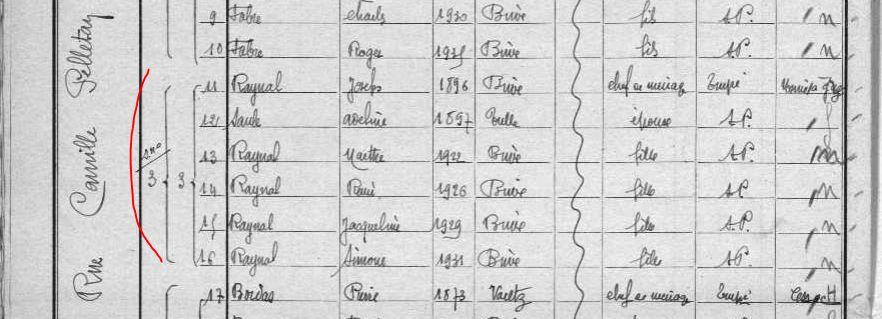 Rue Camille Pelletan
9 Fabre Charles 1930 Brive fils S.P. n
10 Fabre Roger 1935 Brive fils S.P. n
3 3
11 Raynal Joseph 1896 Brive chef de ménage
12 adeline 1897 Tulle épouse S.P.
13 Raynal Marthe 1922 Brive fille S.P.
14 Raynal 1926 Brive fille S.P. n
15 Raynal Jacqueline 1929 Brive fille S.P. n
16 Raynal Simone 1931 Brive fille S.P. n
17 Bordas 1873 chef de ménage